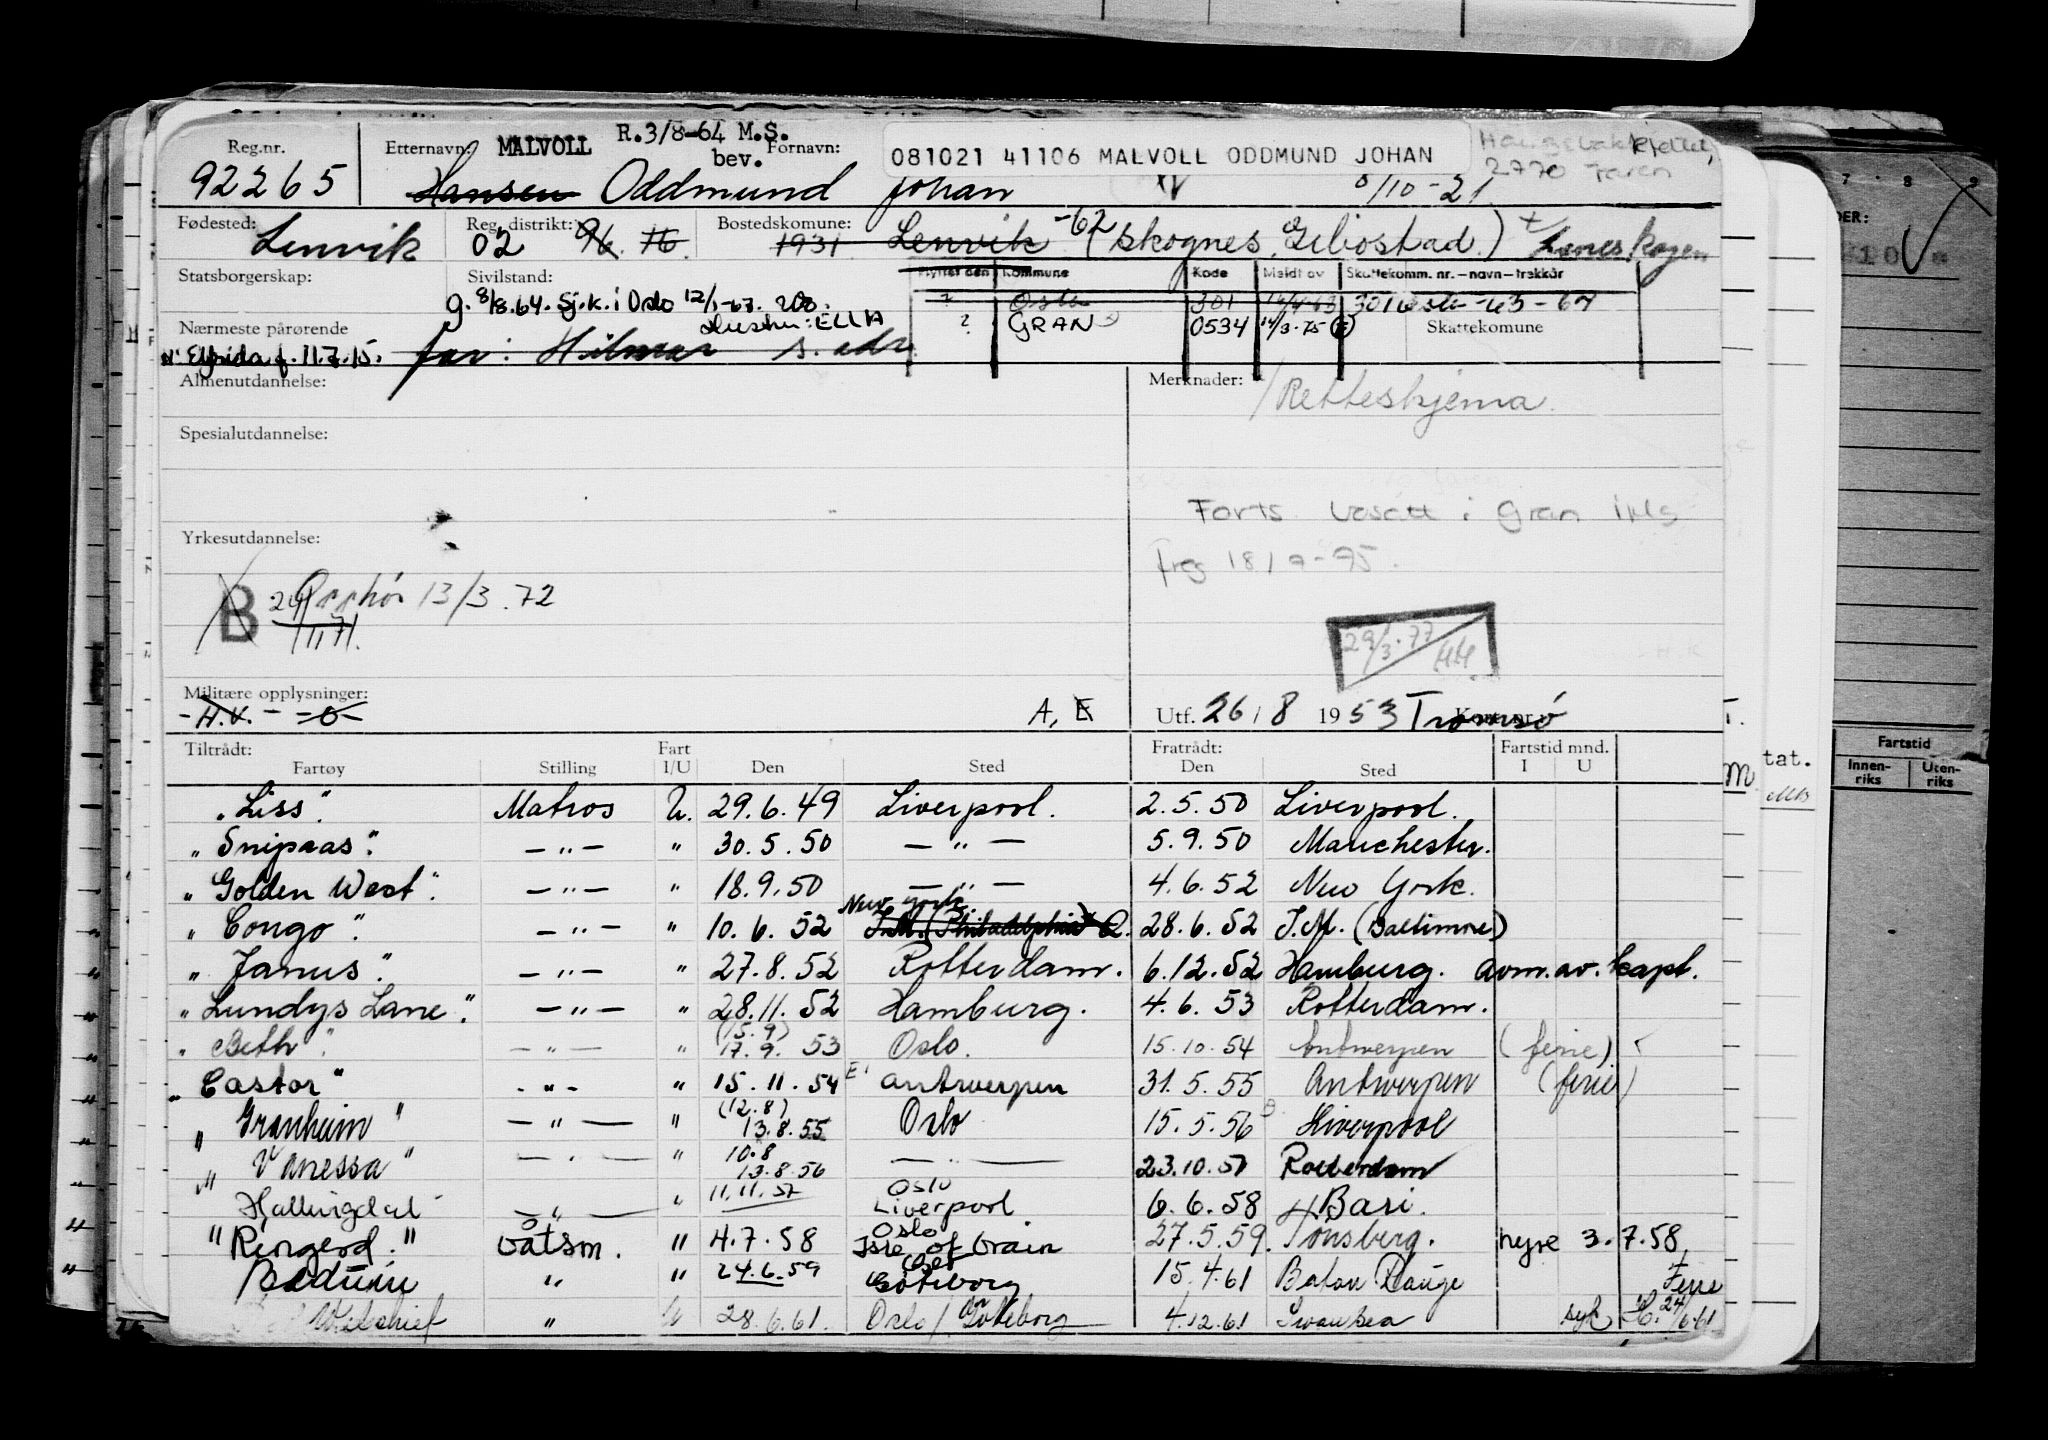 Reg.nr. Etternavn: MALVOLL R.3/8-64 M.S. bev. Fornavn: 081021 41106 MALVOLL ODDMUND JOHAN
2770 Jaren
92265 Hansen Oddmund Johan 8/10-21
Fødested: Lenvik Reg. distrikt: 02 96. 76. Bostedskomune: 1931 Lenvik -62 (Skognes, Gibostad.)
Statsborgerskap: Sivilstand: Flyttet den Kommune Kode Meldt av Skattekomm. nr.-navn-trekkår
g. 8/8.64. Sj.k. i Oslo 12/1-67. ? Oslo 301
Hustru: ELLA ? GRAN 0534 14/3-75 Skattekomune
Nærmeste pårørende
f. 11.7.15. far: Hilmar s. adr.
Almenutdannelse: Merknader: Retteskjema
Spesialutdannelse:
Forts bosatt i Gran
Yrkesutdannelse:
B Opphør 13/3.72
29/3.77
Militære opplysninger:
-H.V.- =0- A, E Utf. 26/8 1953 Tromsø Kort nr.
Tiltrådt: Fart Fratrådt: Fartstid mnd.
Fartøy Stilling I/U Den Sted Den Sted I U
"Liss". Matros U. 29.6.49 Liverpool. 2.5.50 Liverpool.
"Snipaas". — " — " 30.5.50 — " — 5.9.50 Manchester.
"Golden West". — " — " 18.9.50 — " — 4.6.52 New York.
"Congo". — " — " 10.6.52 New York. I.M. (Philadelphia) 28.6.52 I.M. (Baltimore)
"Janus". — " — " 27.8.52 Rotterdam. 6.12.52 Hamburg. avm. av. kapt.
"Lundys Lane". — " — " 28.11.52 Hamburg. 4.6.53 Rotterdam.
"Beth". — " — " (15.9) 17.9.53 Oslo. 15.10.54 Antwerpen (ferie)
"Castor" - " - " 15.11.54 Antwerpen 31.5.55 Antwerpen (ferie)
"Granheim" — " — " (12.8) 13.8.55 Oslo 15.5.56 Liverpool
"Vanessa" — " — " 10.8 13.8.56 — " — 23.10.57 Rotterdam
Hallingdal — " — " 11.11.57 Oslo Liverpool 6.6.58 Bari.
"Ringerd." Båtsm. " 4.7.58 Oslo Isle of Grain 27.5.59. Tønsberg. hyre 3.7.58
Beduin " " 24.6.59 Göteborg 15.4.61 Baton Rouge Ferie
" U 28.6.61. Oslo/Göteborg 4.12.61 Swansea syk 24/6.61
Fartstid
Innen-riks Uten-riks
tat.